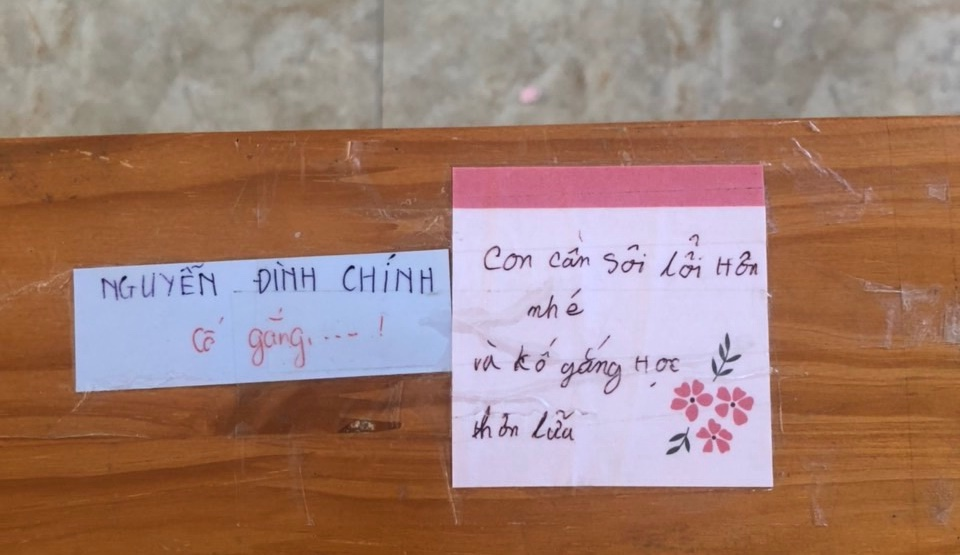 NGUYỄN ĐÌNH CHÍNH
Cố gắng....!
Con cần sôi lổi Hơn
nhé
và kố gắng Học
hơn lữa